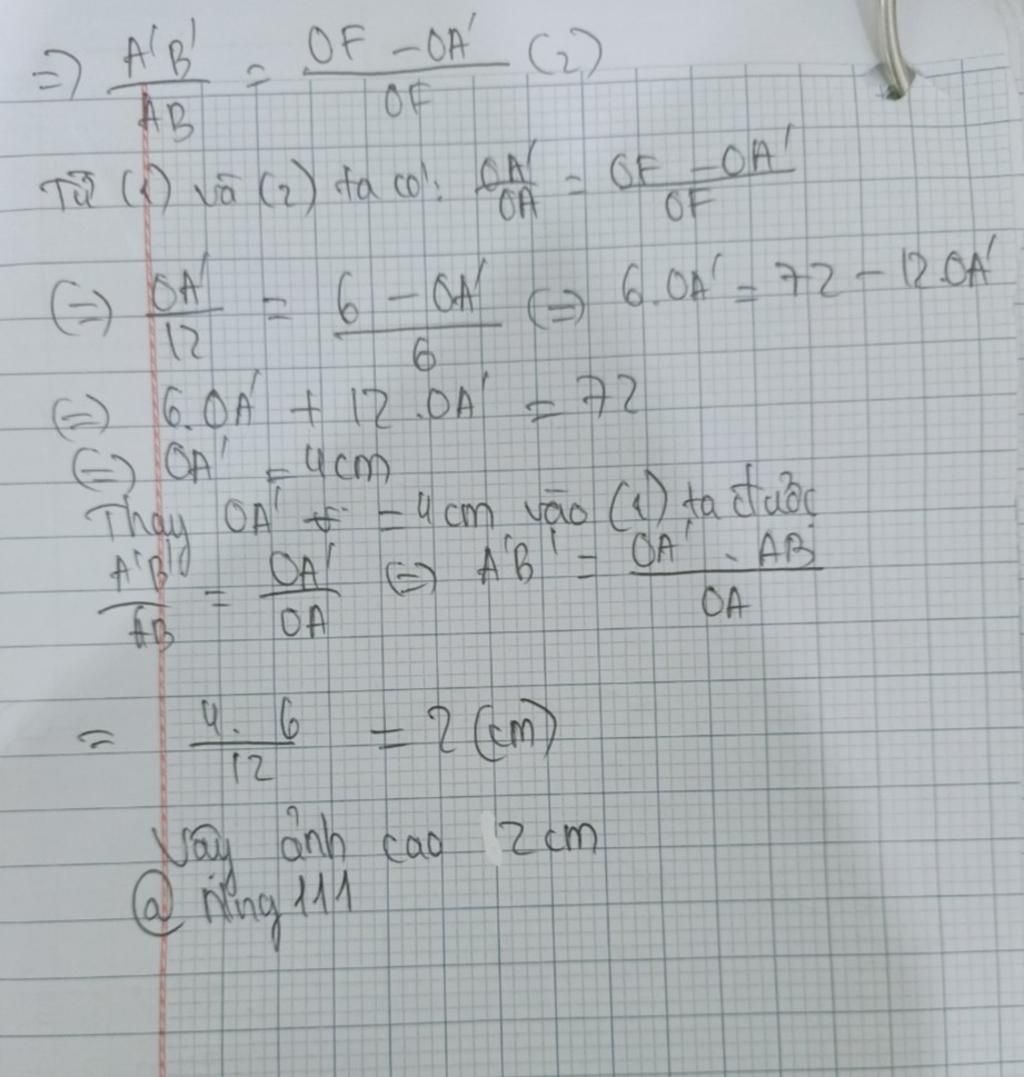 => A'B'/AB = OF - OA'/OF (2)
Từ (1) và (2) ta có: OA'/OA = OF - OA'/OF
(=) OA'/12 = 6 - OA'/6 (=) 6.OA' = 72 - 12.OA'
(=) 6.OA' + 12.OA' = 72
(=) OA' = 4cm
Thay OA' = 4cm vào (1) ta được
A'B'/AB = OA'/OA (=) A'B' = OA'.AB/OA
= 4.6/12 = 2 (cm)
Vậy ảnh cao 2cm
@ n

111